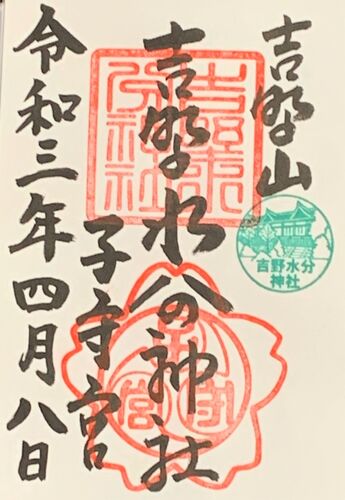 吉野山
吉野水分神社
子守宮
令和三年四月八日
吉野水分神社
子守宮
吉野水分
神社